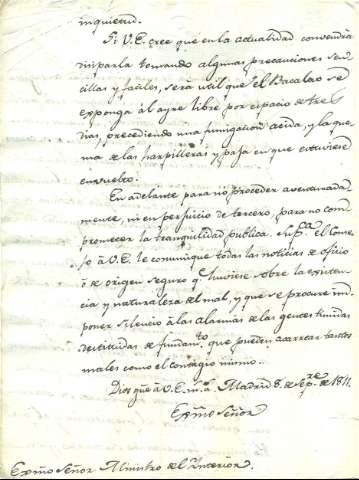 inquietud.
Si V.E. cree que en la actualidad convendra
irsparla tomando algunas precauciones sen-
cillas y faciles, será util que el Bacalao se
exponga al ayre libre por espacio de tres
dias, precediendo una fumigacion acida, y la que-
ma de las harpilleras y paja en que estuviese
envuelto.
En adelante para no proceder aventurada
mente, ni en perjuicio de tercero, para no com
prometer la tranquilidad publica. Sup.ca el Conse-
jo á V.E. le comunique todas las noticias de oficio
ó de origen seguro q.e tuviese sobre la existen-
cia y naturaleza del mal, y que se procure im
poner silencio á las alarmas de las gentes timidas
destituidas de fundam.to que pueden acarrear tantos
males como el contagio mismo.
Dios gũe á V.E. m.s a.s Madrid 8. de Sep.re de 1811.
Exm̃o Señor
Exm̃o Señor Ministro de lo Interior.